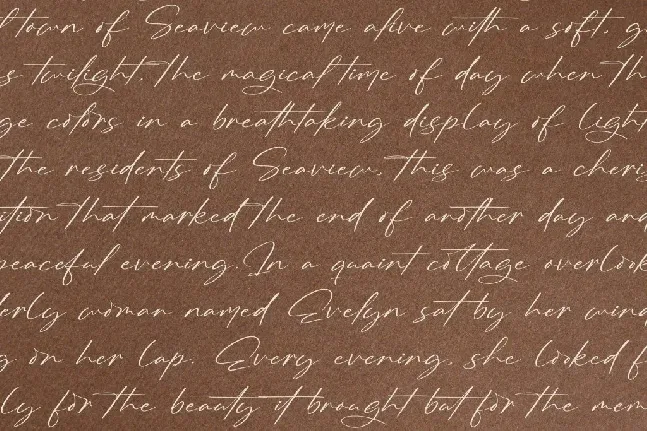 town of Seaview came alive with a soft, g
s twilight. The magical time of day when Th
ge colors in a breathtaking display of light
the residents of Seaview. This was a cheris
ition That marked The end of another day and
peaceful evening. In a quaint cottage overlook
derly woman named Evelyn sat by her wind
g on her lap. Every evening, she looked f
ly for The beauty it brought but for The mem